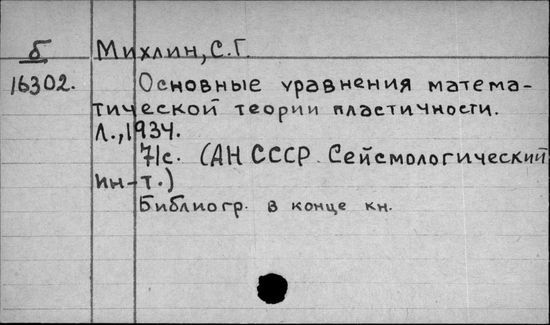 б Михлин, С.Г.
16302. Основные уравнения матема-
тической теории пластичности.
Л., 1934.
71с. (АН СССР. Сейсмологический
ин-т.)
Библиогр. в конце кн.